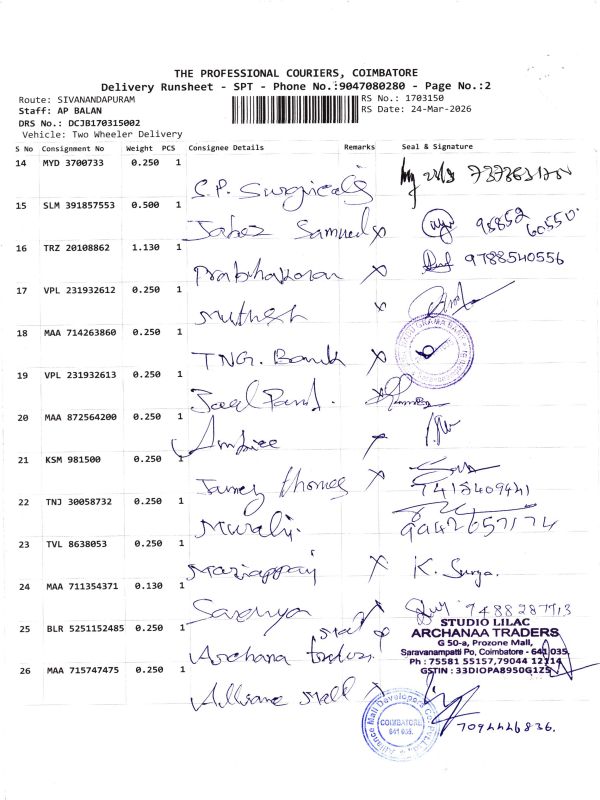 THE PROFESSIONAL COURIERS, COIMBATORE
Delivery Runsheet - SPT - Phone No.:9047080280 - Page No.:2
Route: SIVANANDAPURAM
RS No.: 1703150
Staff: AP BALAN
RS Date: 24-Mar-2026
DRS No.: DCJB170315002
Vehicle: Two Wheeler Delivery
S No Consignment No Weight PCS Consignee Details Remarks Seal & Signature
14 MYD 3700733 0.250 1
S.P. Surgicals
15 SLM 391857553 0.500 1
Jabez Samuel x 95852 60550
16 TRZ 20108862 1.130 1
Prabhakaran x 9788540556
17 VPL 231932612 0.250 1
Muthesh x
18 MAA 714263860 0.250 1
TNG. Bank x
19 VPL 231932613 0.250 1
20 MAA 872564200 0.250 1
21 KSM 981500 0.250 1
James Thomas x
7418409441
22 TNJ 30058732 0.250 1
Murali.
9942657174
23 TVL 8638053 0.250 1
Mariappan x K. Surya.
24 MAA 711354371 0.130 1
Saranya 7488287713
25 BLR 5251152485 0.250 1
STUDIO LILAC
ARCHANAA TRADERS
G 50-a, Prozone Mall,
Saravanampatti Po, Coimbatore - 641 035.
Ph : 75581 55157,79044 12114
GSTIN : 33DIOPA8950G1Z5
Archana traders.
26 MAA 715747475 0.250 1
Alliance Mall
Alliance Mall Developers Co. Pvt. Ltd.
COIMBATORE
641 035.
7094446836.